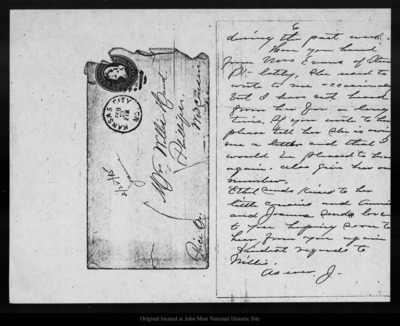 KANSAS CITY
MO.
FEB
Mr. Willis
Phillips,
6
during the past week.
Have you heard
from Mrs. Evans of
Pl. lately, she used to
write to me
but I have not heard
from her for a long
time, if you write to her
please tell her she is owing
me a letter and that I
would be pleased to hear
again. also give her our
number.
Ethel sends kisses to her
little cousins and
and Joanna sends love
to you hoping soon to
hear from you again
Kindest regards to
Willis.
As ever, J.
Original located at John Muir National Historic Site